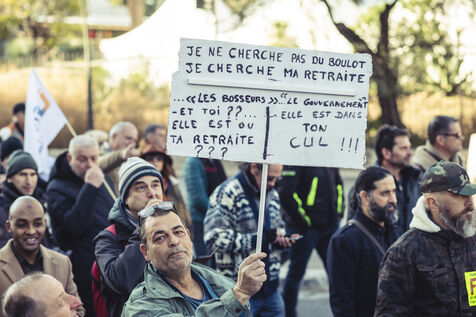 JE NE CHERCHE PAS DU BOULOT
JE CHERCHE MA RETRAITE
...«LES BOSSEURS»...
-ET TOI ??...
ELLE EST OU
TA RETRAITE
???
"LE GOUVERNEMENT
-ELLE EST DANS
TON
CUL !!!